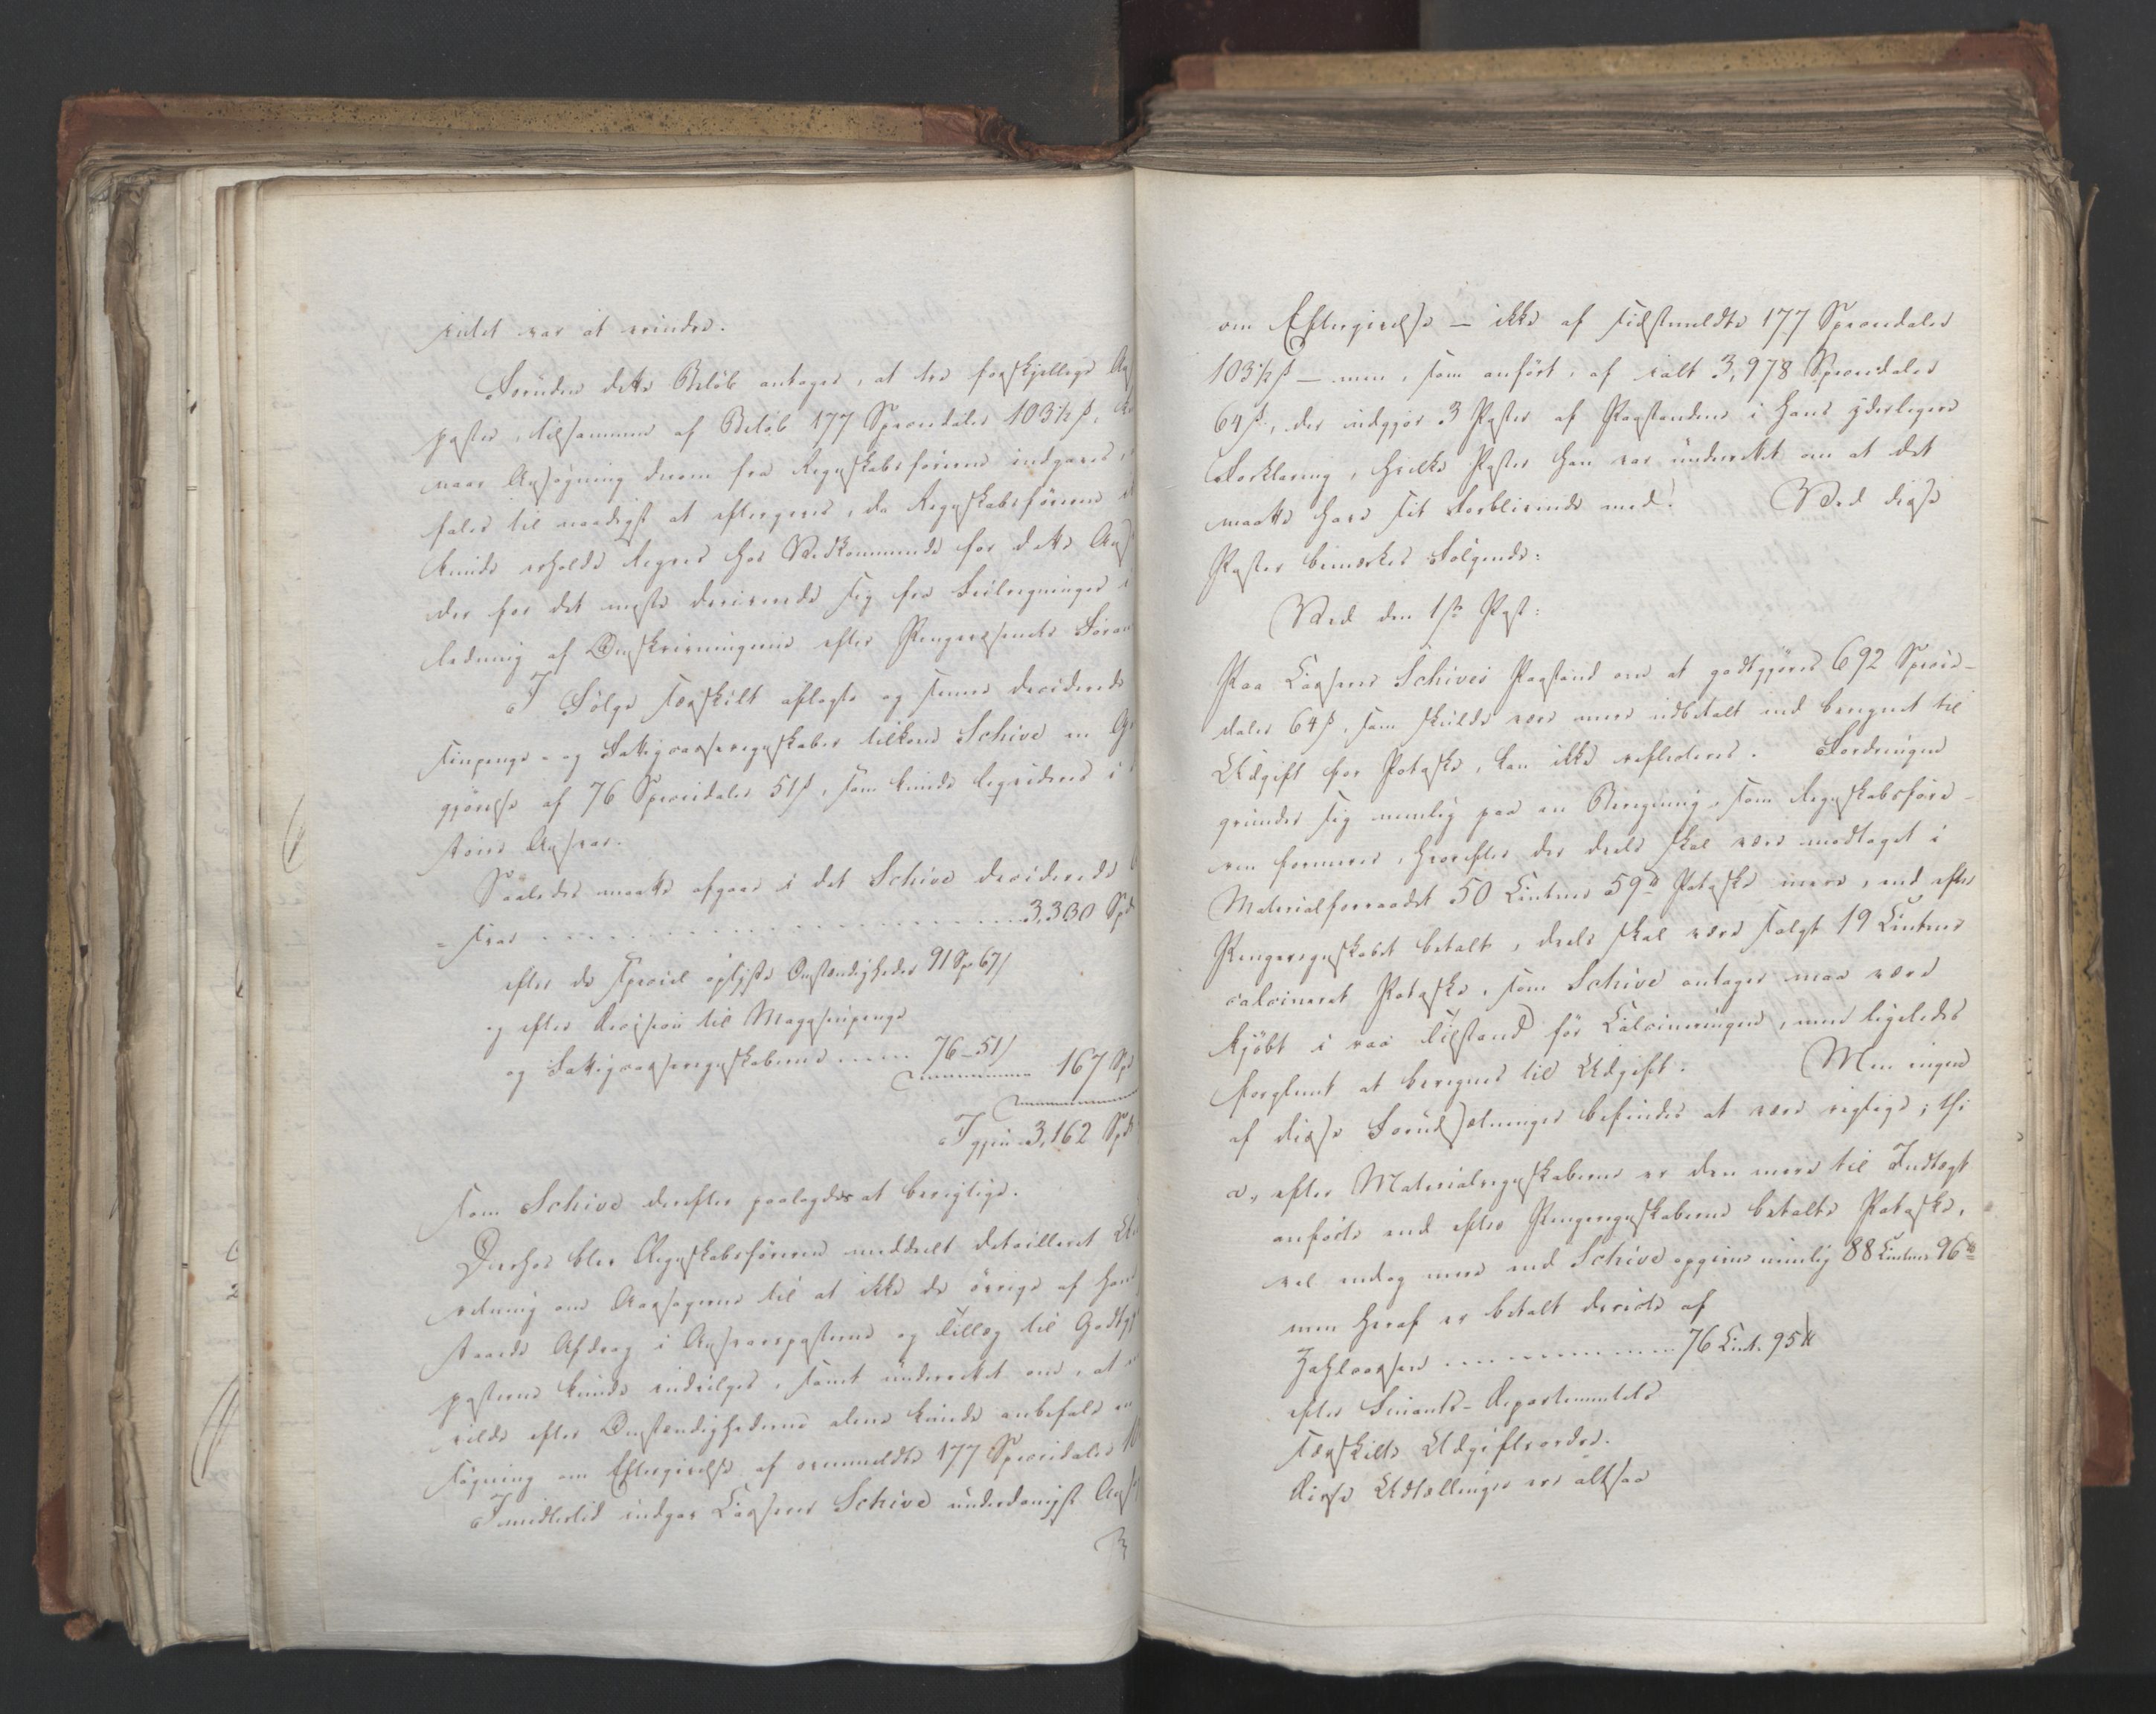 vidst var at erindre.
Foruden dette Beløb antoges, at tre forskjellige
poster, tilsammen af Beløb 177 Speciedaler 103½ ß,
naar Ansøgning derom fra Regnskabsføreren indgaves,
fales til naadigst at eftergives, da Regnskabsføreren
kunde erholde Regres hos Vedkommende for dette
der for det meste deriverede sig fra Feilregninger
ledning af Omskrivningerne efter Pengevæsenets
I Følge særskilt aflagte og senere deciderede
sinpenge- og Fattigcasseregnskaber tilkom Schive en
gjørelse af 76 Speciedaler 51 ß, som kunde liqvideres i
store Ansvar.
Saaledes maatte afgaae i det Schive deciderede
= svar . . . . . 3,330 Spd
efter de special oplyste Omstændigheder 91 Sp 67 ß
og efter Decision til Magasinpenge
og Fattigcasseregnskaberne . . . . 76 – 51 ß
167 Spd
Igjen 3,162 Spd
som Schive derefter paalagdes at berigtige.
Derhos blev Regnskabsføreren meddeelt detailleret
retning om Aarsagerne til at ikke de øvrige af ham
staaede Afdrag i Ansvarsposterne og Tillæg til
posterne kunde indvilges, samt underrettet om, at
vilde efter Omstændighederne alene kunde anbefale en
søgning om Eftergivelse af ovenmeldte 177 Speciedaler
Imidlertid indgav Casserer Schive underdanigst
om Eftergivelse – ikke af sidstmeldte 177 Speciedaler
103½ ß – men, som anført, af ialt 3,978 Speciedaler
64 ß, der udgjør 3 Poster af Paastandene i hans yderligere
Forklaring, hvilke Poster han var underrettet om at det
maatte have sit Forblivende med. Ved disse
Poster bemærkes Følgende:
Ved den 1ste Post:
Paa Casserer Schives Paastand om at godtgjøres 692 Specie-
daler 64 ß, som skulde være mere udbetalt end beregnet til
Udgift for Potaske, kan ikke reflecteres. Fordringen
grunder sig nemlig paa en Beregning, som Regnskabsføre-
ren formerer, hvorefter der deels skal være modtaget i
Materialforraadet 50 Centner 59 ℔ Potaske mere, end efter
Pengeregnskabet betalt, deels skal være solgt 19 Centner
calcineret Potaske, som Schive antager maa være
kjöbt i raa Tilstand för Calcineringen, men ligeledes
forglemt at beregnes til Udgift. Men ingen
af disse Forudsætninger befindes at være rigtige; thi
a, efter Materialregnskaberne er den mere til Indtægt
anførte end efter Pengeregnskaberne betalte Potaske,
vel endog mere end Schive opgiver nemlig 88 Centner 96 ℔
men heraf er betalt directe af
Zahlcassen . . . . . 76 Cent. 95 ℔
efter Finants-Departementets
særskilte Udgiftsordre.
Disse Udtællinger ere altsaa